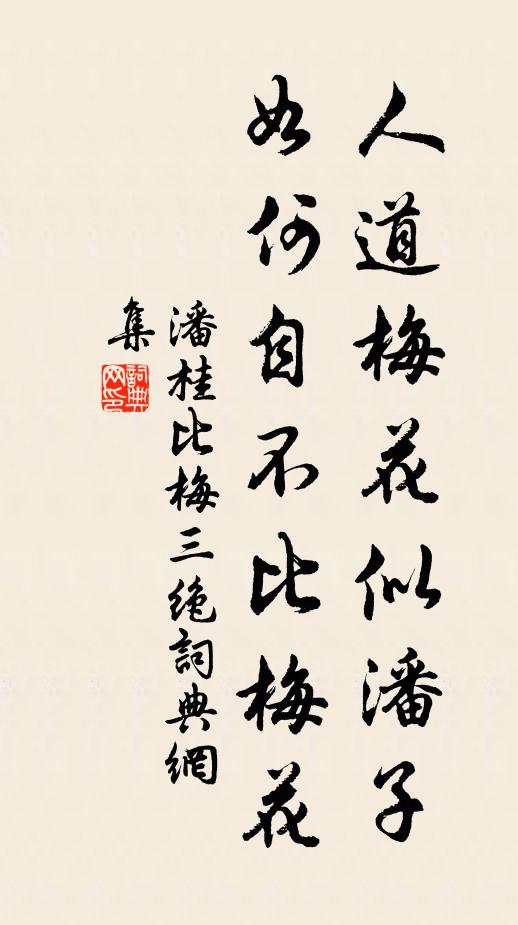 人道梅花似潘子
如何自不比梅花
潘桂比梅三绝詞典網
集
詞典網印